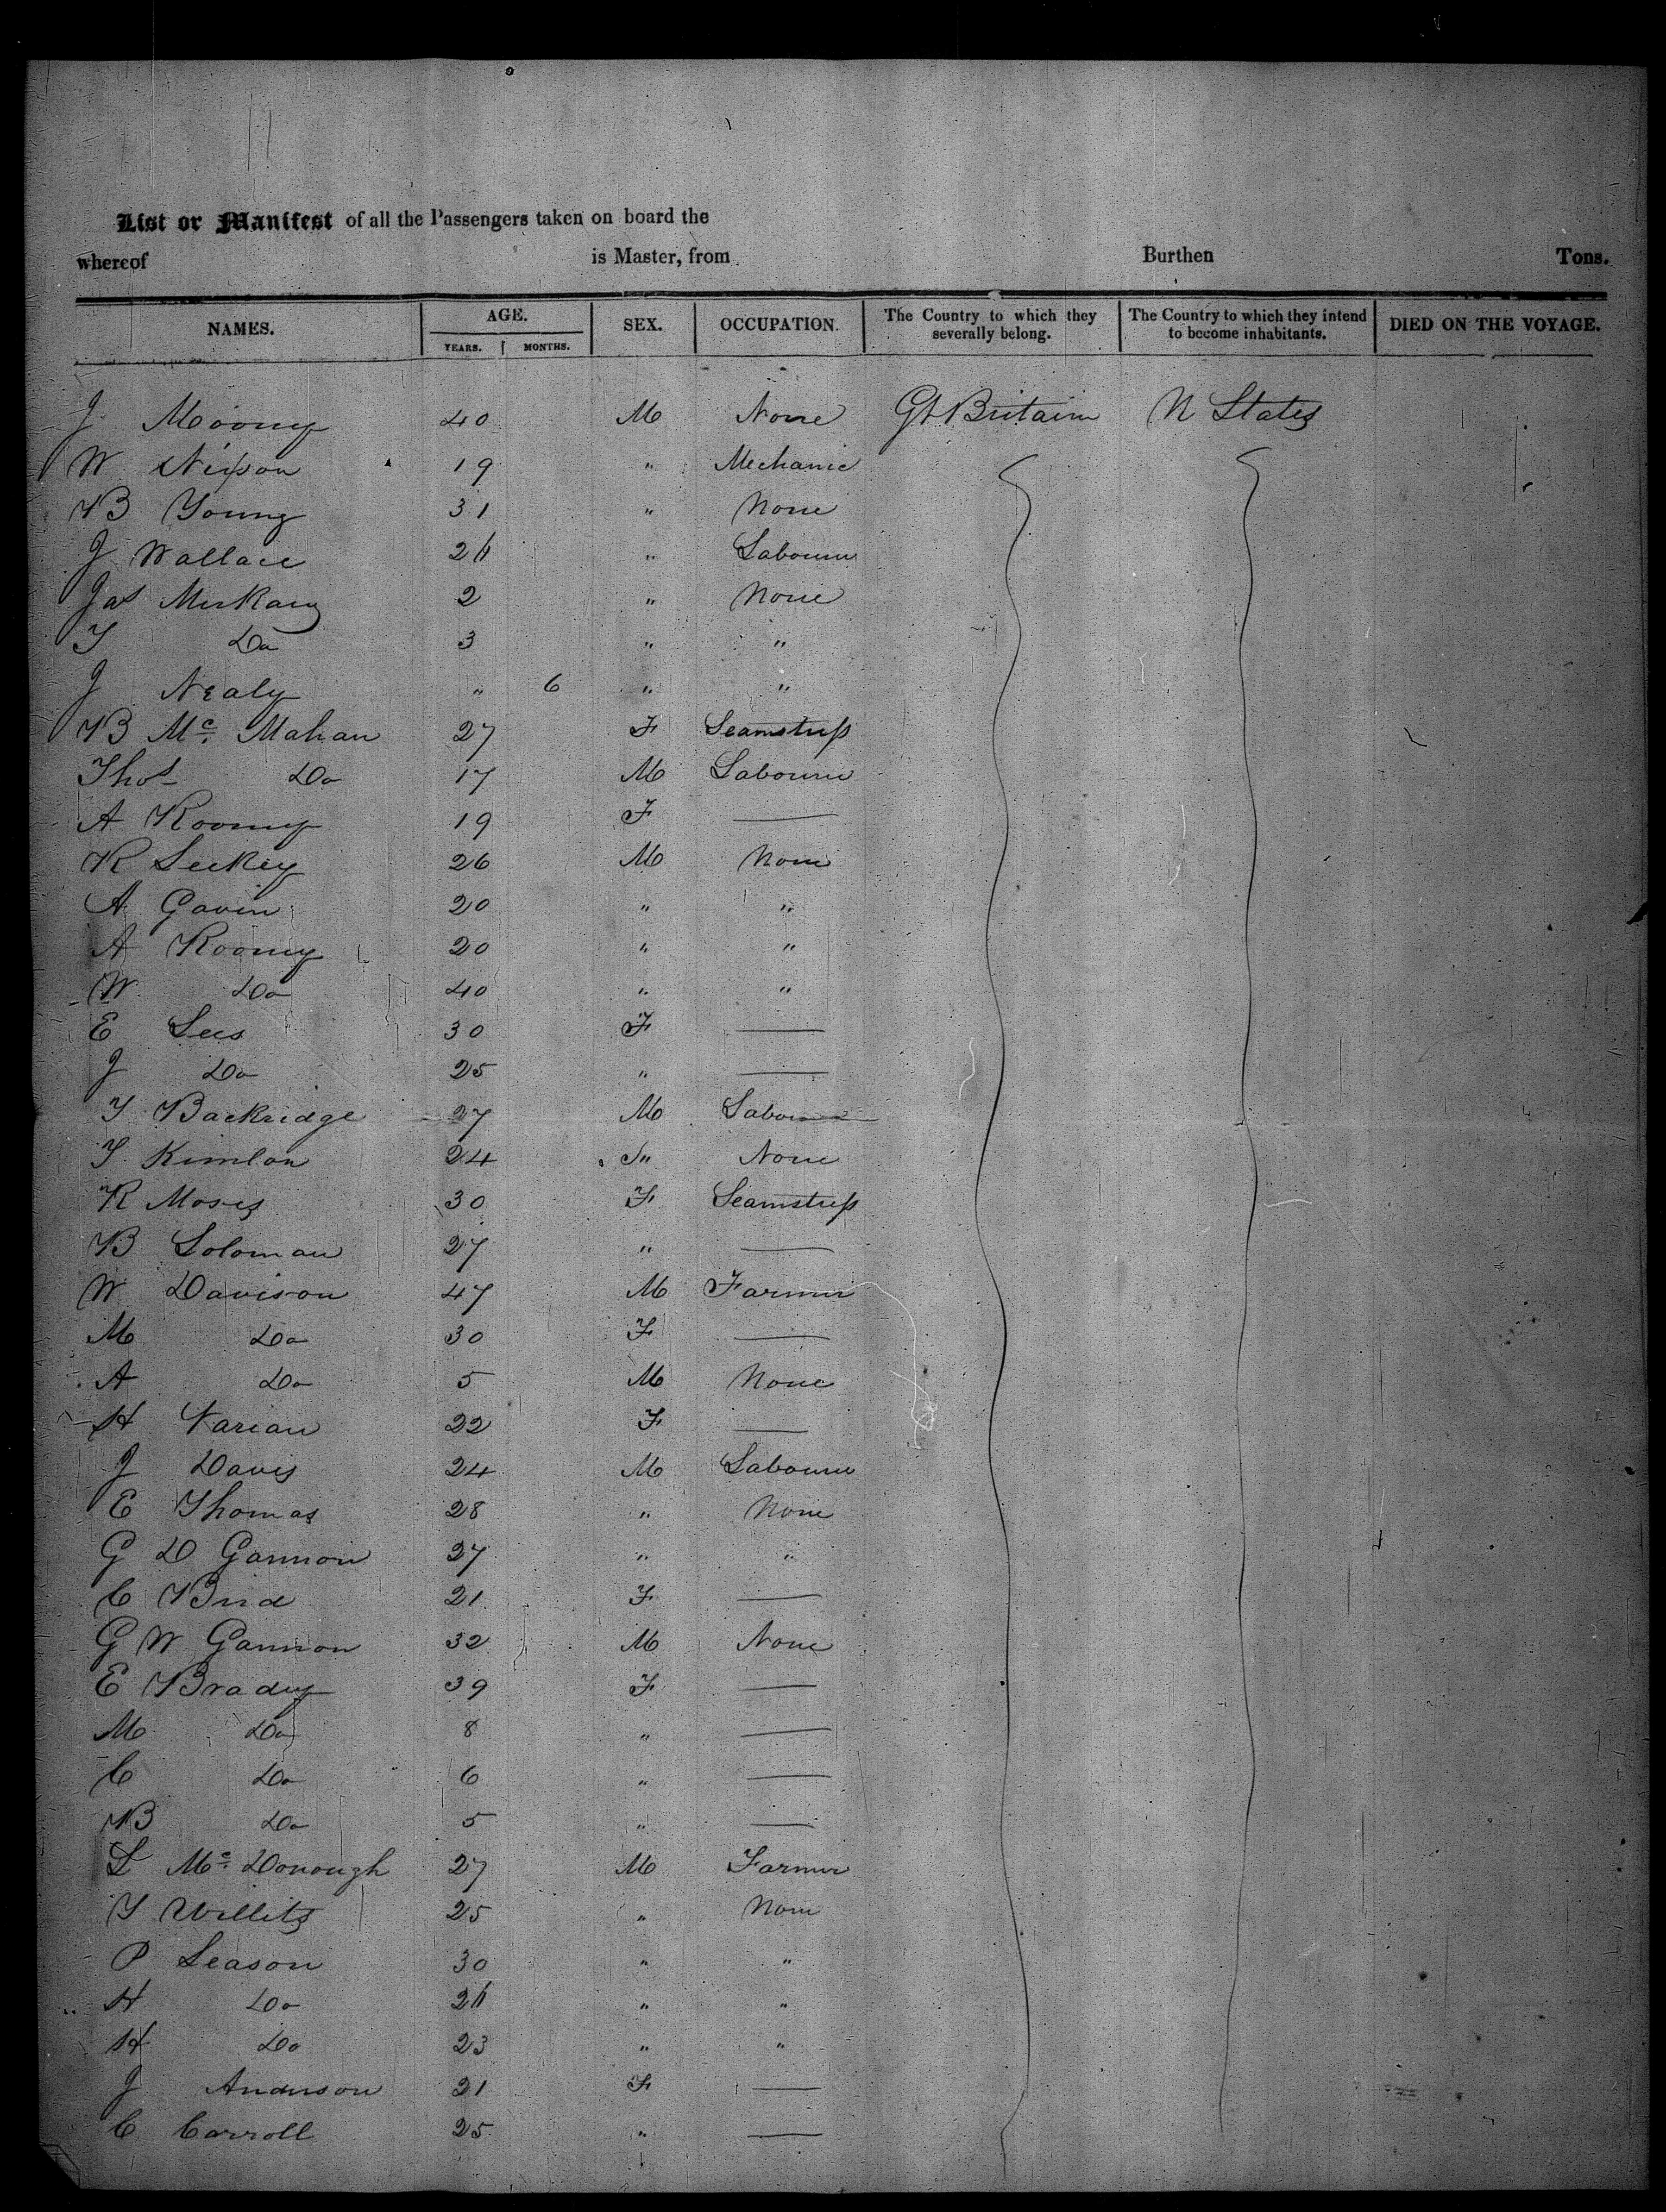 List or Manifest of all the Passengers taken on board the
whereof is Master, from Burthen Tons.
NAMES. AGE. SEX. OCCUPATION. The Country to which they severally belong. The Country to which they intend to become inhabitants. DIED ON THE VOYAGE.
YEARS. MONTHS.
J Mooney 40 M None Gt Britain U States
W Nixson 19 " Mechanic
B Young 31 " None
J Wallace 21 " Labourer
Jas 2 " None
T Do 3 " "
J Nealy " 6 " "
B Mc Mahan 27 F Seamstress
Thos Do 17 M Labourer
A Rooney 19 F —
R Leekey 26 M None
A Gavin 20 " "
A Rooney 20 " "
W Do 40 " "
E Lees 30 F —
J Do 25 " —
T Backridge 27 M Labourer
T Kimlon 24 " None
R Moses 30 F Seamstress
B Soloman 27 " —
W Davison 47 M Farmer
M Do 30 F —
A Do 5 M None
H Varian 22 F —
J Davis 24 M Labourer
E Thomas 28 " None
G D Gannon 27 " "
C Bird 21 F —
G W Gannon 32 M None
E Brady 39 F —
M Do 8 " —
C Do 6 " —
B Do 5 " —
L Mc Donough 27 M Farmer
T Willits 25 " None
P Leason 30 " "
H Do 21 " "
H Do 23 " "
J Anderson 21 F —
C Carroll 25 " —